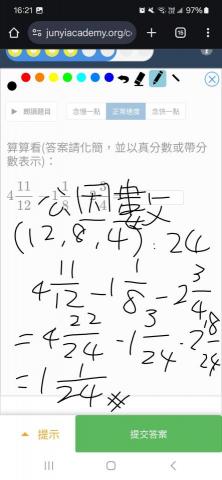 16:21 97%
junyiacademy.org/c
15
朗讀題目 念慢一點 正常速度 念快一點
算算看(答案請化簡，並以真分數或帶分數表示)：
4 11/12 - 1 1/8
公因數
(12,8,4): 24
4 11/12 - 1 1/8 - 2 3/4
= 4 22/24 - 1 3/24 - 2 18/24
= 1 1/24 ※
提示 提交答案